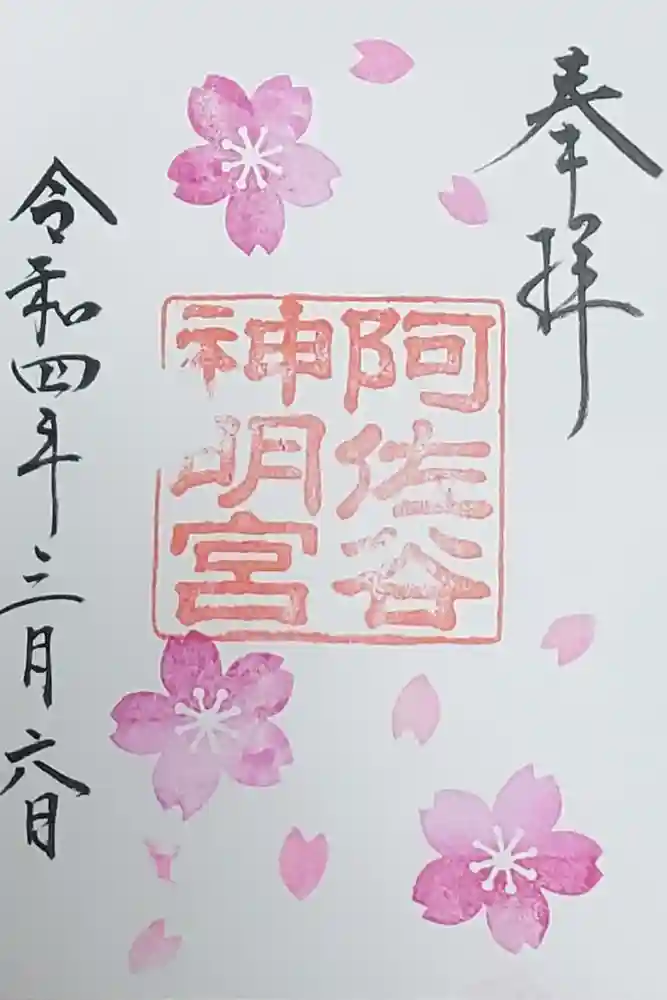 奉拝
阿佐谷
神明宮
令和四年三月六日